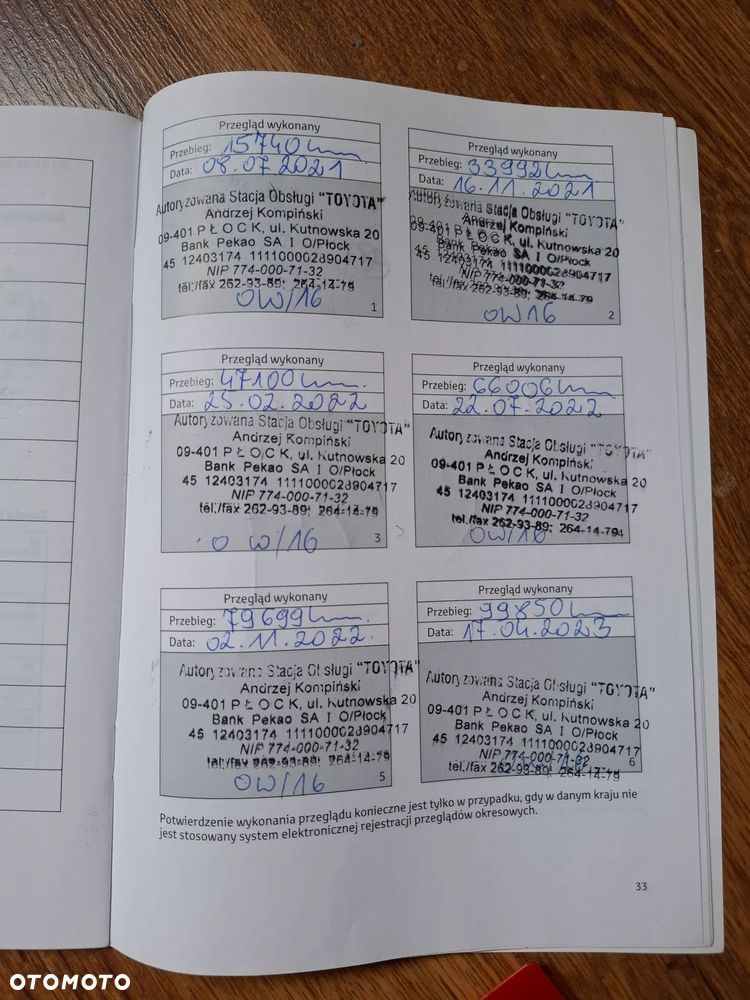 Przegląd wykonany
Przebieg: 15740 km
Data: 08.07.2021
Autoryzowana Stacja Obsługi "TOYOTA"
Andrzej Kompiński
09-401 PŁOCK, ul. Kutnowska 20
Bank Pekao SA I O/Płock
45 12403174 1111000028904717
NIP 774-000-71-32
tel./fax 262-93-89; 264-14-79
OW/16
1
Przegląd wykonany
Przebieg: 33992 km
Data: 16.11.2021
Autoryzowana Stacja Obsługi "TOYOTA"
Andrzej Kompiński
09-401 PŁOCK, ul. Kutnowska 20
Bank Pekao SA I O/Płock
45 12403174 1111000028904717
NIP 774-000-71-32
tel./fax 262-93-89; 264-14-79
OW16
2
Przegląd wykonany
Przebieg: 47100 km
Data: 25.02.2022
Autoryzowana Stacja Obsługi "TOYOTA"
Andrzej Kompiński
09-401 PŁOCK, ul. Kutnowska 20
Bank Pekao SA I O/Płock
45 12403174 1111000028904717
NIP 774-000-71-32
tel./fax 262-93-89; 264-14-79
OW/16
3
Przegląd wykonany
Przebieg: 66006 km
Data: 22.07.2022
Autoryzowana Stacja Obsługi "TOYOTA"
Andrzej Kompiński
09-401 PŁOCK, ul. Kutnowska 20
Bank Pekao SA I O/Płock
45 12403174 1111000028904717
NIP 774-000-71-32
tel./fax 262-93-89; 264-14-79
OW/16
4
Przegląd wykonany
Przebieg: 79699 km
Data: 02.11.2022.
Autoryzowana Stacja Obsługi "TOYOTA"
Andrzej Kompiński
09-401 PŁOCK, ul. Kutnowska 20
Bank Pekao SA I O/Płock
45 12403174 1111000028904717
NIP 774-000-71-32
tel./fax 262-93-89; 264-14-79
OW/16
5
Przegląd wykonany
Przebieg: 99850 km
Data: 17.04.2023
Autoryzowana Stacja Obsługi "TOYOTA"
Andrzej Kompiński
09-401 PŁOCK, ul. Kutnowska 20
Bank Pekao SA I O/Płock
45 12403174 1111000028904717
NIP 774-000-71-32
tel./fax 262-93-89; 264-14-79
6
Potwierdzenie wykonania przeglądu konieczne jest tylko w przypadku, gdy w danym kraju nie
jest stosowany system elektronicznej rejestracji przeglądów okresowych.
33
OTOMOTO